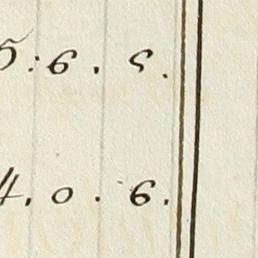 5:6. 5.
4. 0. 6.